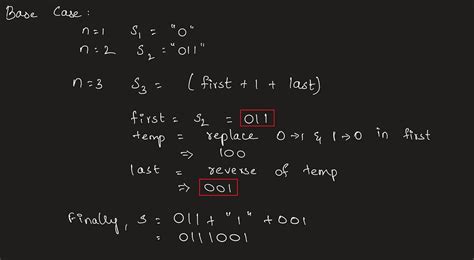 Base Case:
n=1 S₁ = "0"
n=2 S₂ = "011"
n=3 S₃ = (first + 1 + last)
first = S₂ = 011
temp = replace 0→1 & 1→0 in first
⇒ 100
last = reverse of temp
⇒ 001
Finally, S = 011 + "1" + 001
= 0111001